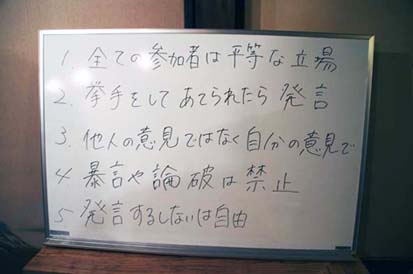 1. 全ての参加者は平等な立場
2. 挙手をしてあてられたら発言
3. 他人の意見ではなく自分の意見で
4 暴言や論破は禁止
5 発言するしないは自由